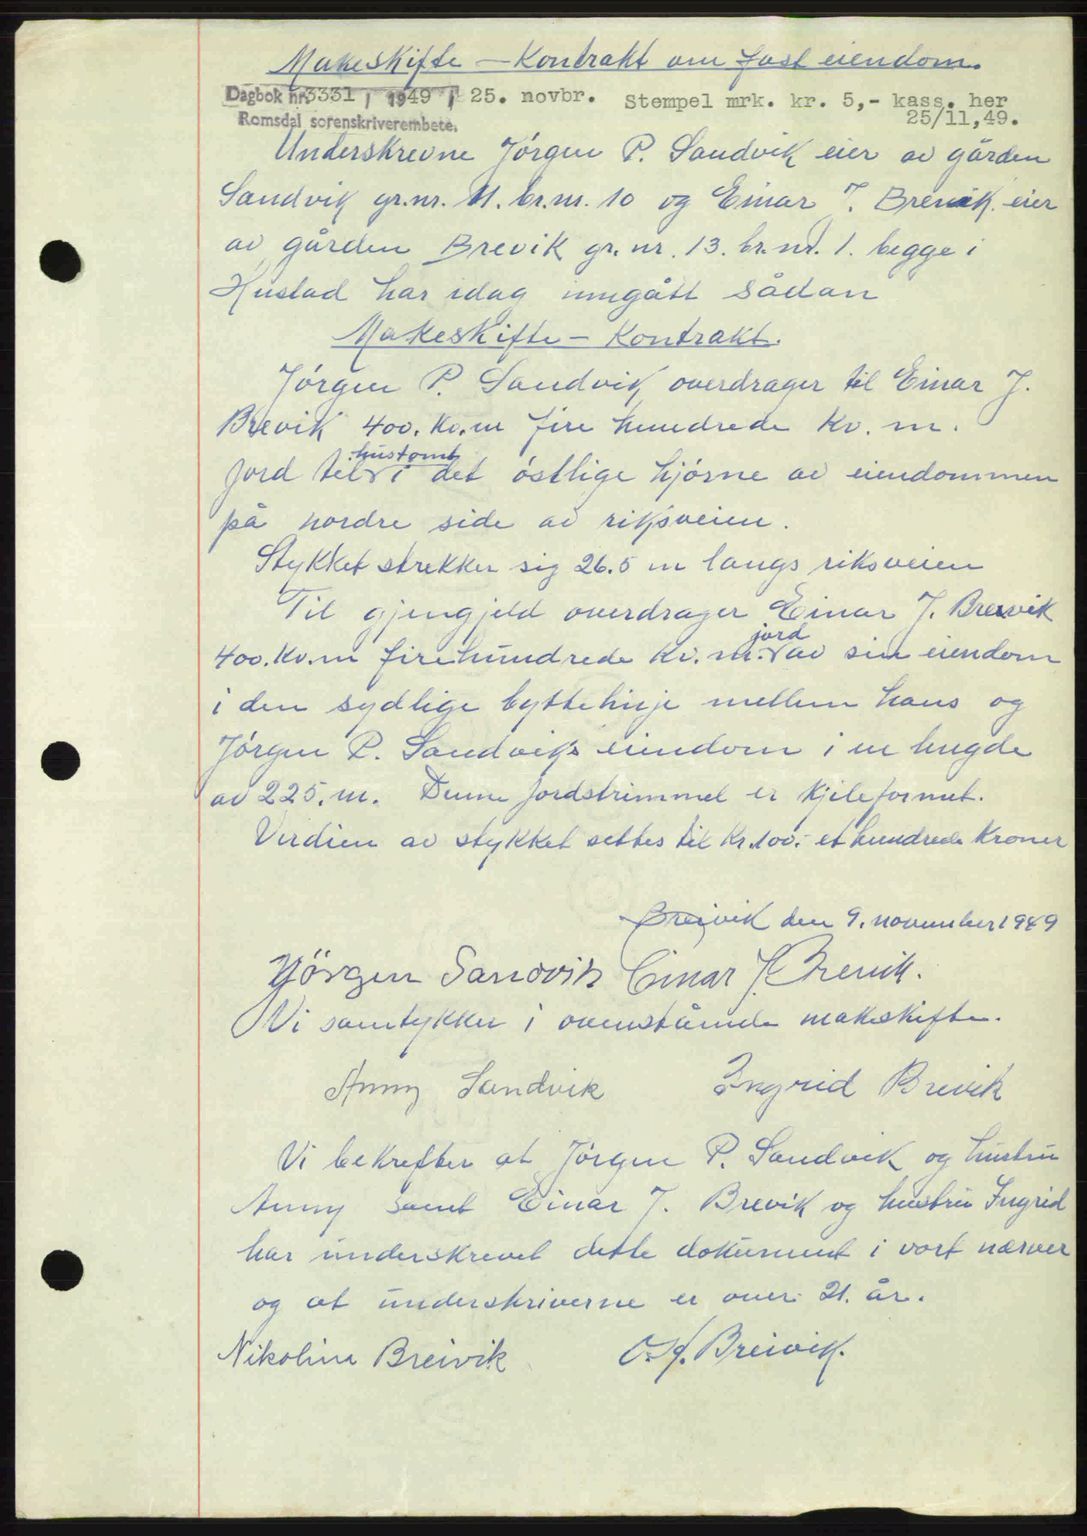 Makeskifte – Kontrakt om fast eiendom.
Dagbok nr. 3331 / 1949 / 25. novbr. Stempel mrk. kr. 5,- kass. her
Romsdal sorenskriverembete. 25/11,49.
Underskrevne Jørgen P. Sandvik eier av gården
Sandvik gr.nr. 11. br.nr. 10 og Einar J. Brevik eier
av gården Brevik gr. nr. 13. br. nr. 1. begge i
Hustad har idag inngått sådan
Makeskifte – Kontrakt.
Jørgen P. Sandvik overdrager til Einar J.
Brevik 400. Kv.m fire hundrede Kv. m.
hustomt
jord til i det østlige hjørne av eiendommen
på nordre side av riksveien.
Stykket strekker sig 26.5 m langs riksveien
Til gjengjeld overdrager Einar J. Brevik
jord
400. Kv.m firehundrede Kv. m. av sin eiendom
i den sydlige byttelinje mellem hans og
Jørgen P. Sandviks eiendom i en lengde
av 225. m. Denne jordstrimmel er kjileformet.
Verdien av stykket settes til Kr. 100.- et hundrede Kroner
Breivik den 9. november 1949
Jörgen Sandvik Einar J. Brevik.
Vi samtykker i ovenstående makeskifte.
Anny Sandvik Ingrid Brevik
Vi bekrefter at Jørgen P. Sandvik og hustru
Anny samt Einar J. Brevik og hustru Ingrid
har underskrevet dette dokument i vort nærver
og at underskriverne er over 21. år.
Nikoline Breivik O. Breivik.